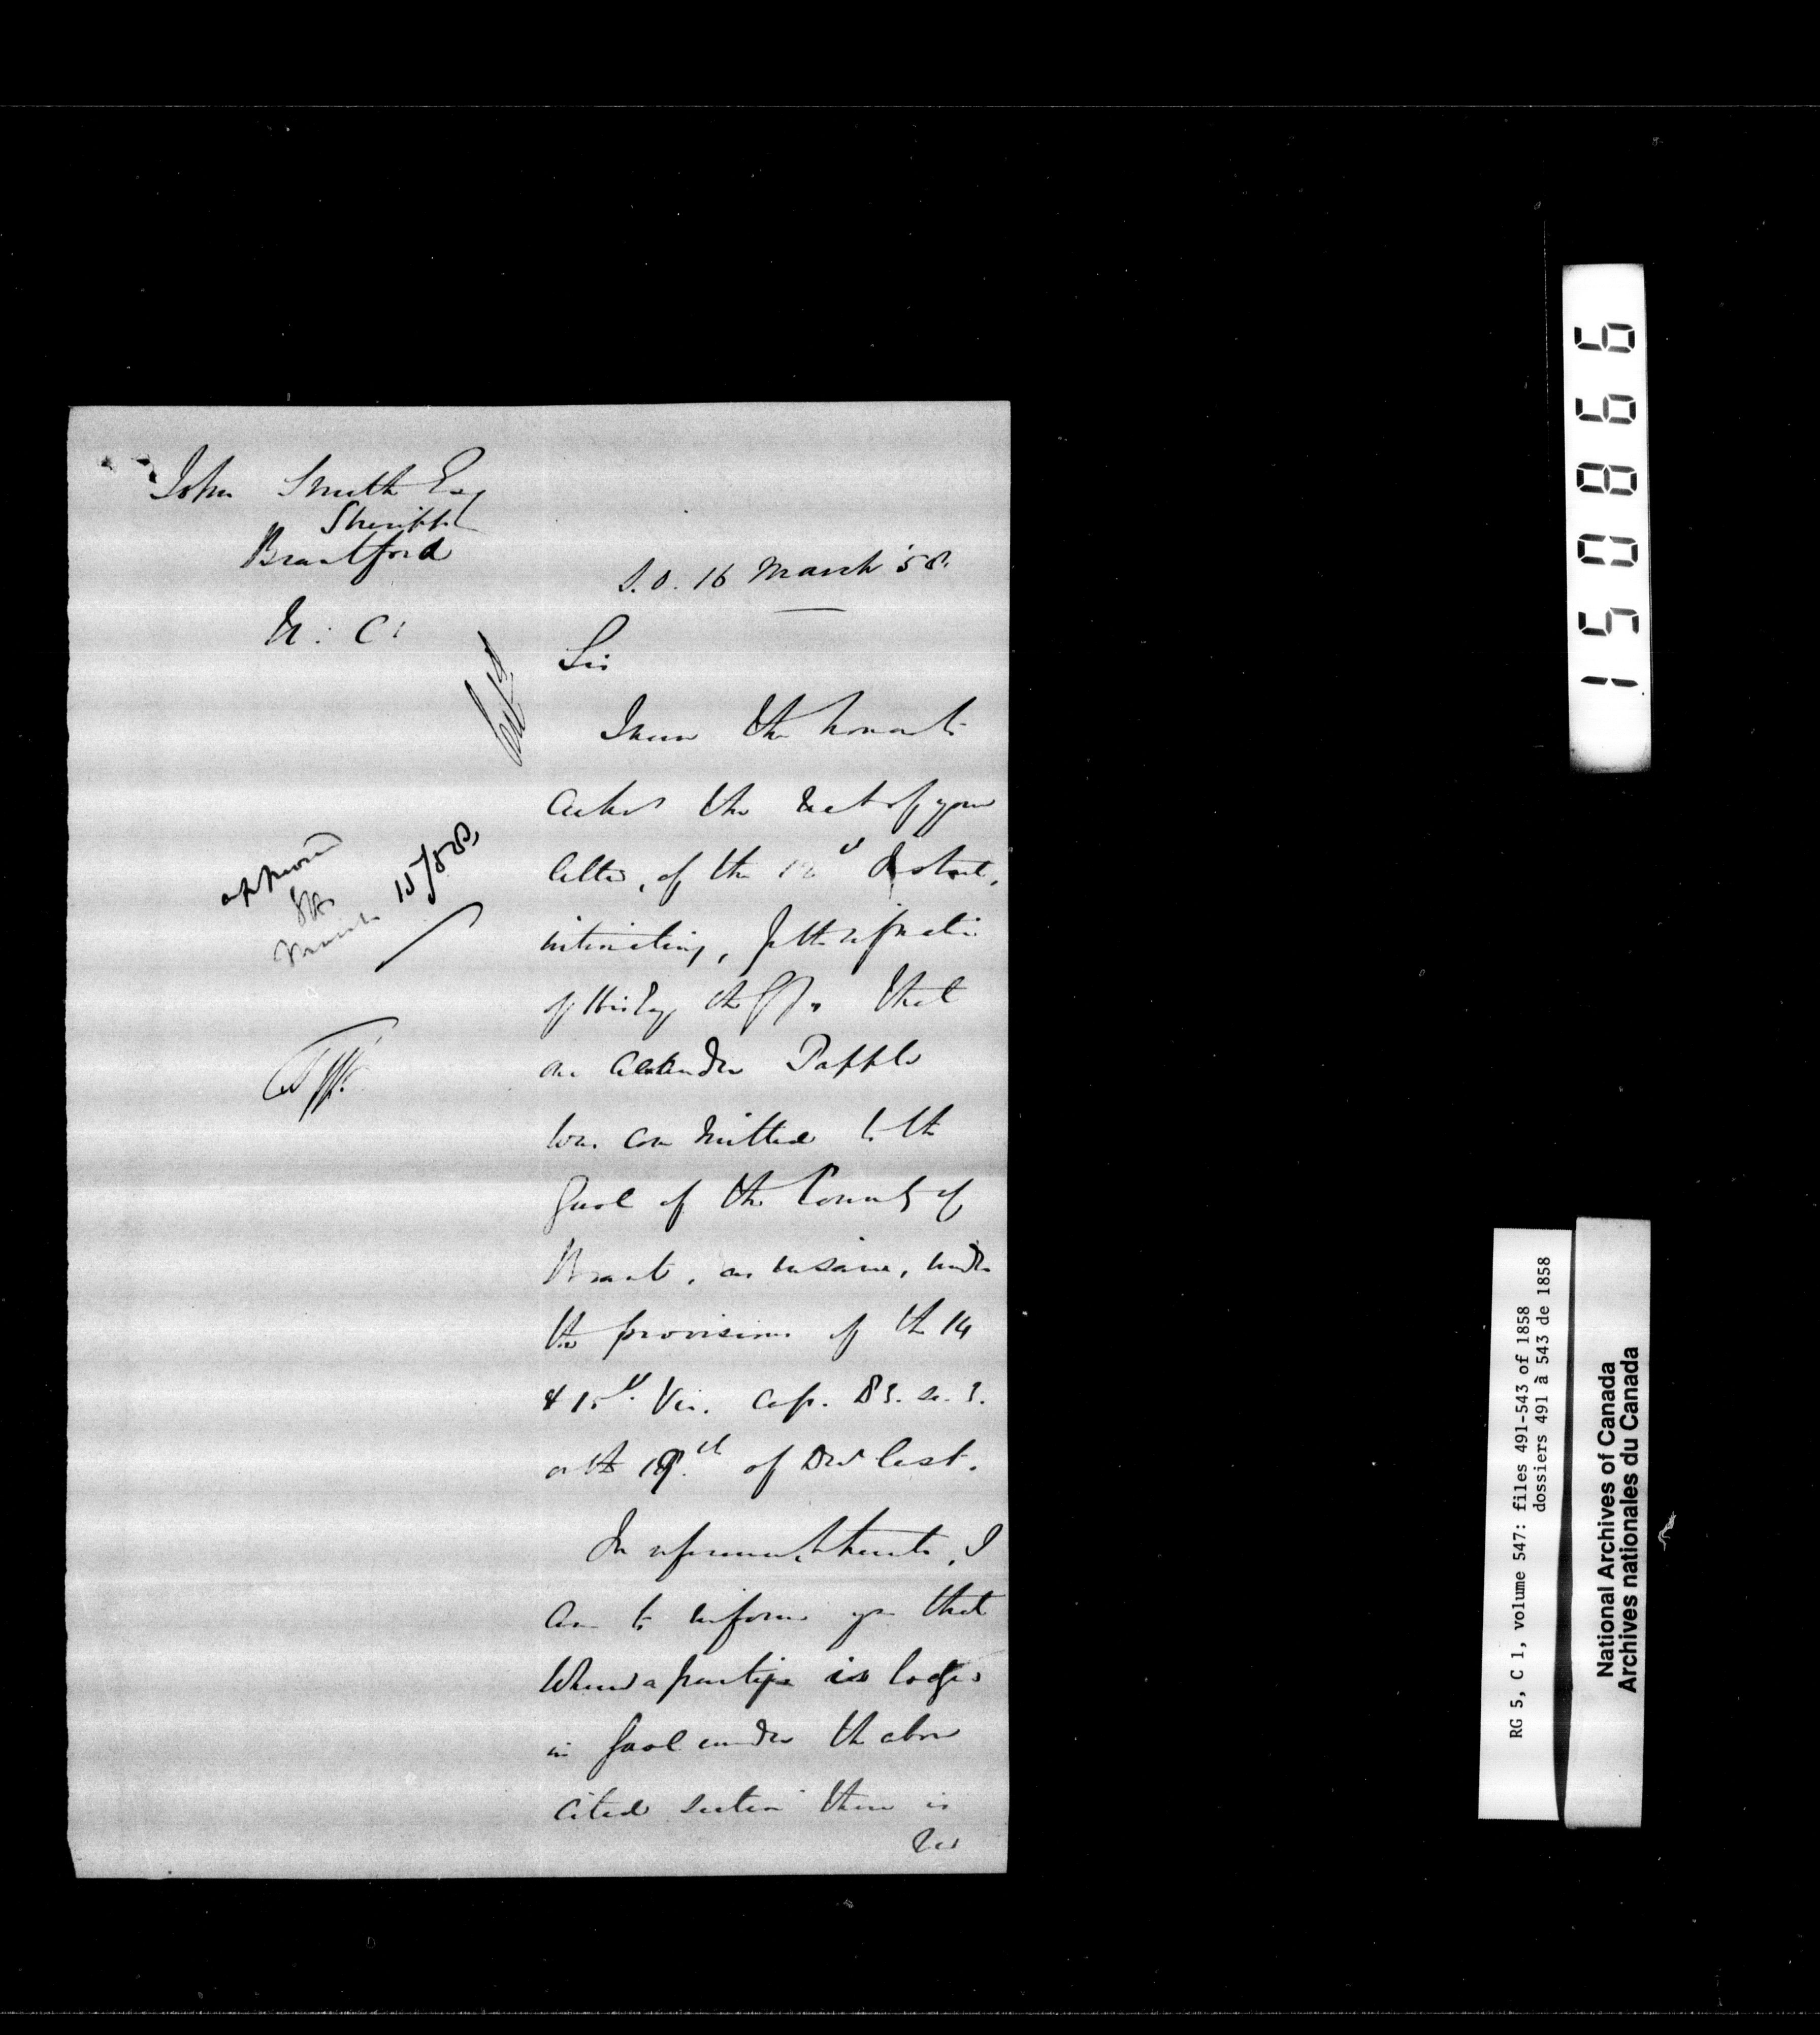 John Smith Esq
Sheriff
Brantford
U. C.
S.O. 16 March '58.
Sir
I have the honor to
ackn the rect of your
letter, of the 12th Instant,
intimating, for the information
of His Exy the GG. that
one Alexander Papple
was committed to the
Gaol of the County of
Brant, as insane, under
the provisions of the 14
& 15th Vic. Cap. 83. se. 3.
on the 19th of Decr last.
In reference thereto, I
am to inform you that
when a party is lodged
in Gaol under the above
cited section there is
approved
March 15/58
150866
RG 5, C 1, volume 547: files 491-543 of 1858
dossiers 491 à 543 de 1858
National Archives of Canada
Archives nationales du Canada